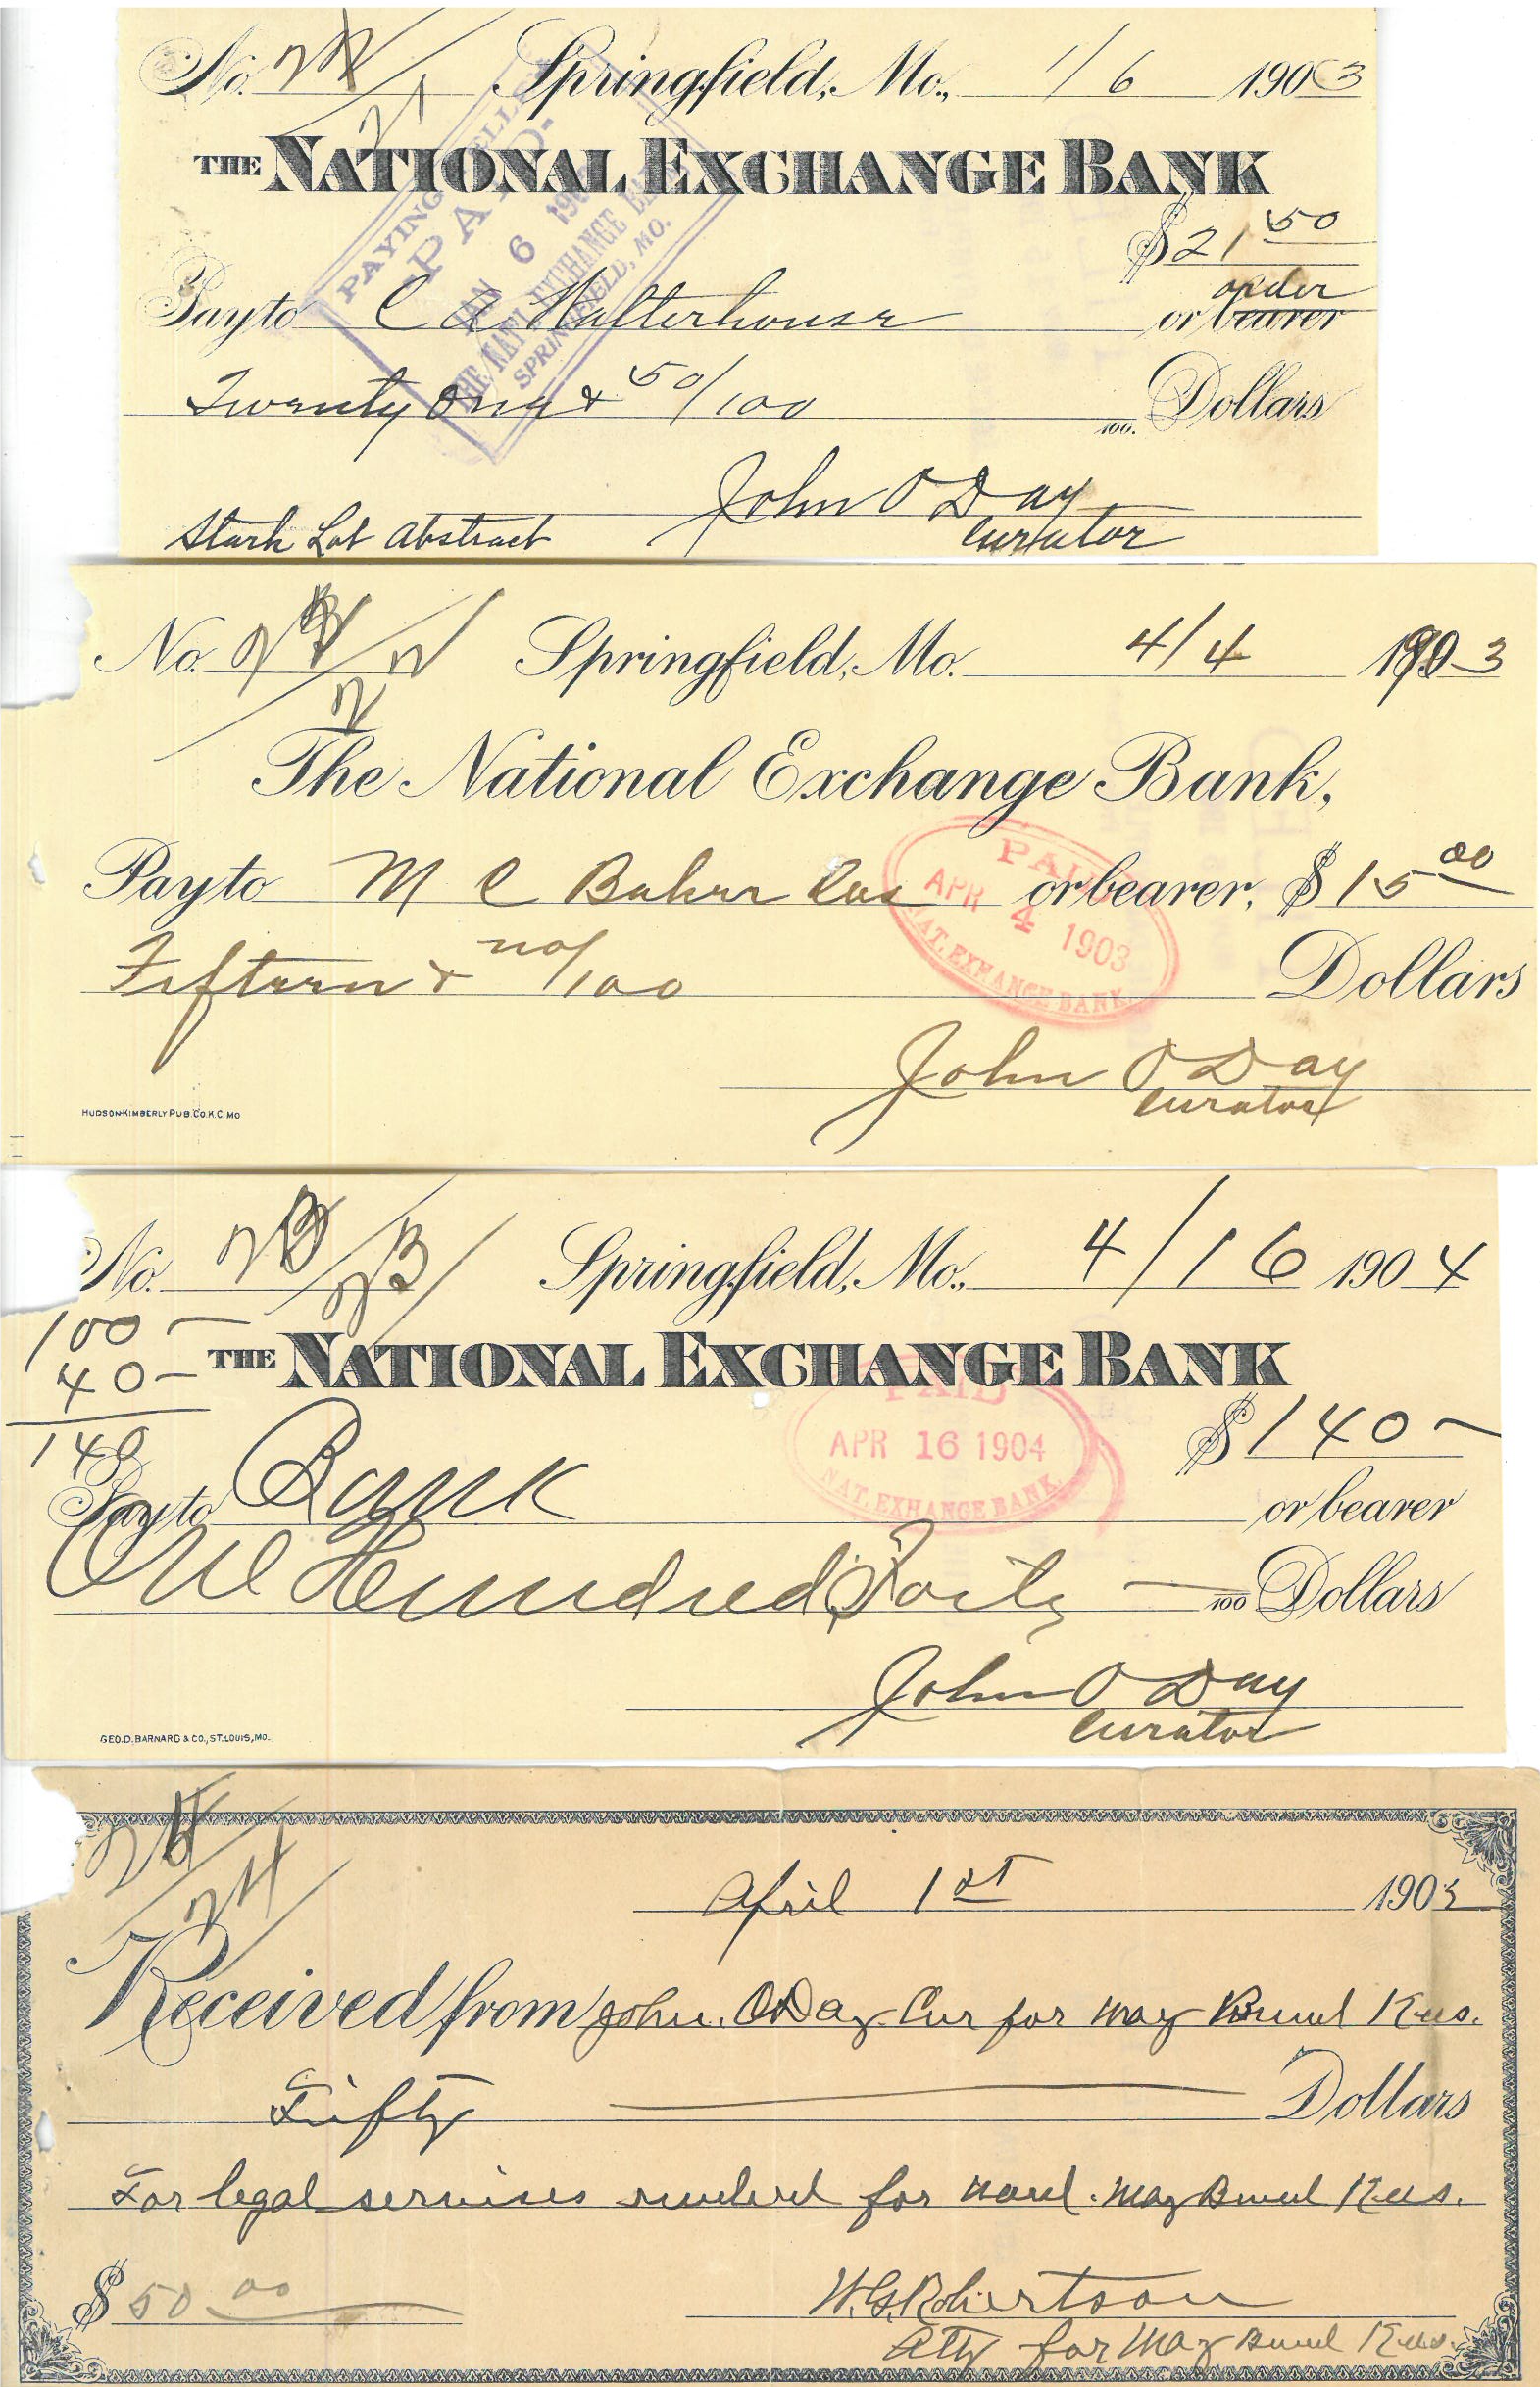 No. 21 Springfield, Mo., 1/6 1903
THE NATIONAL EXCHANGE BANK
PAYING TELLER
PAID
JAN 6 190
THE NAT'L EXCHANGE BANK
SPRINGFIELD, MO.
$21 50
order
Pay to C A Halterhouse or bearer
Twenty One & 50/100 100. Dollars
John O Day
Stark Lot Abstract Curator
No. Springfield, Mo. 4/4 1903
The National Exchange Bank,
PAID
APR 4 1903
NAT. EXHANGE BANK.
Pay to M C Baker Cas or bearer, $15 00
Fifteen & no/100 Dollars
John O Day
Curator
HUDSON-KIMBERLY PUB. CO. K.C. MO
No. 23 Springfield, Mo., 4/16 1904
100 -
40 -
140
THE NATIONAL EXCHANGE BANK
PAID
APR 16 1904
NAT. EXHANGE BANK.
$140 -
Pay to Bank or bearer
One Hundred Forty 100 Dollars
John O Day
Curator
GEO. D. BARNARD & CO., ST. LOUIS, MO.
24
April 1st 1903
Received from John. O Day Cur for May
Fifty Dollars
For legal services rendered for ward. May
$50 00
W.G. Robertson
Atty for May